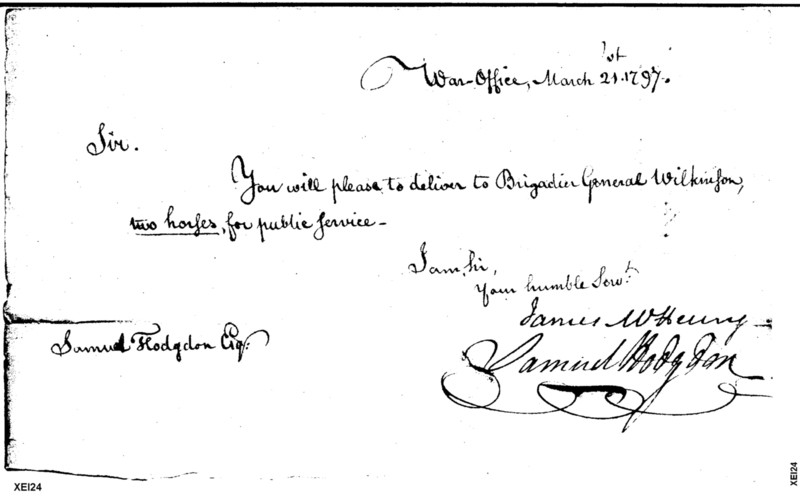 War-Office, March 21st. 1797.
Sir.
You will please to deliver to Brigadier General Wilkinson,
two horses, for public service-
I am, Sir,
Your humble Servt.
James McHenry
Samuel Hodgdon Esq:
Samuel Hodgdon
XEI24
XEI24